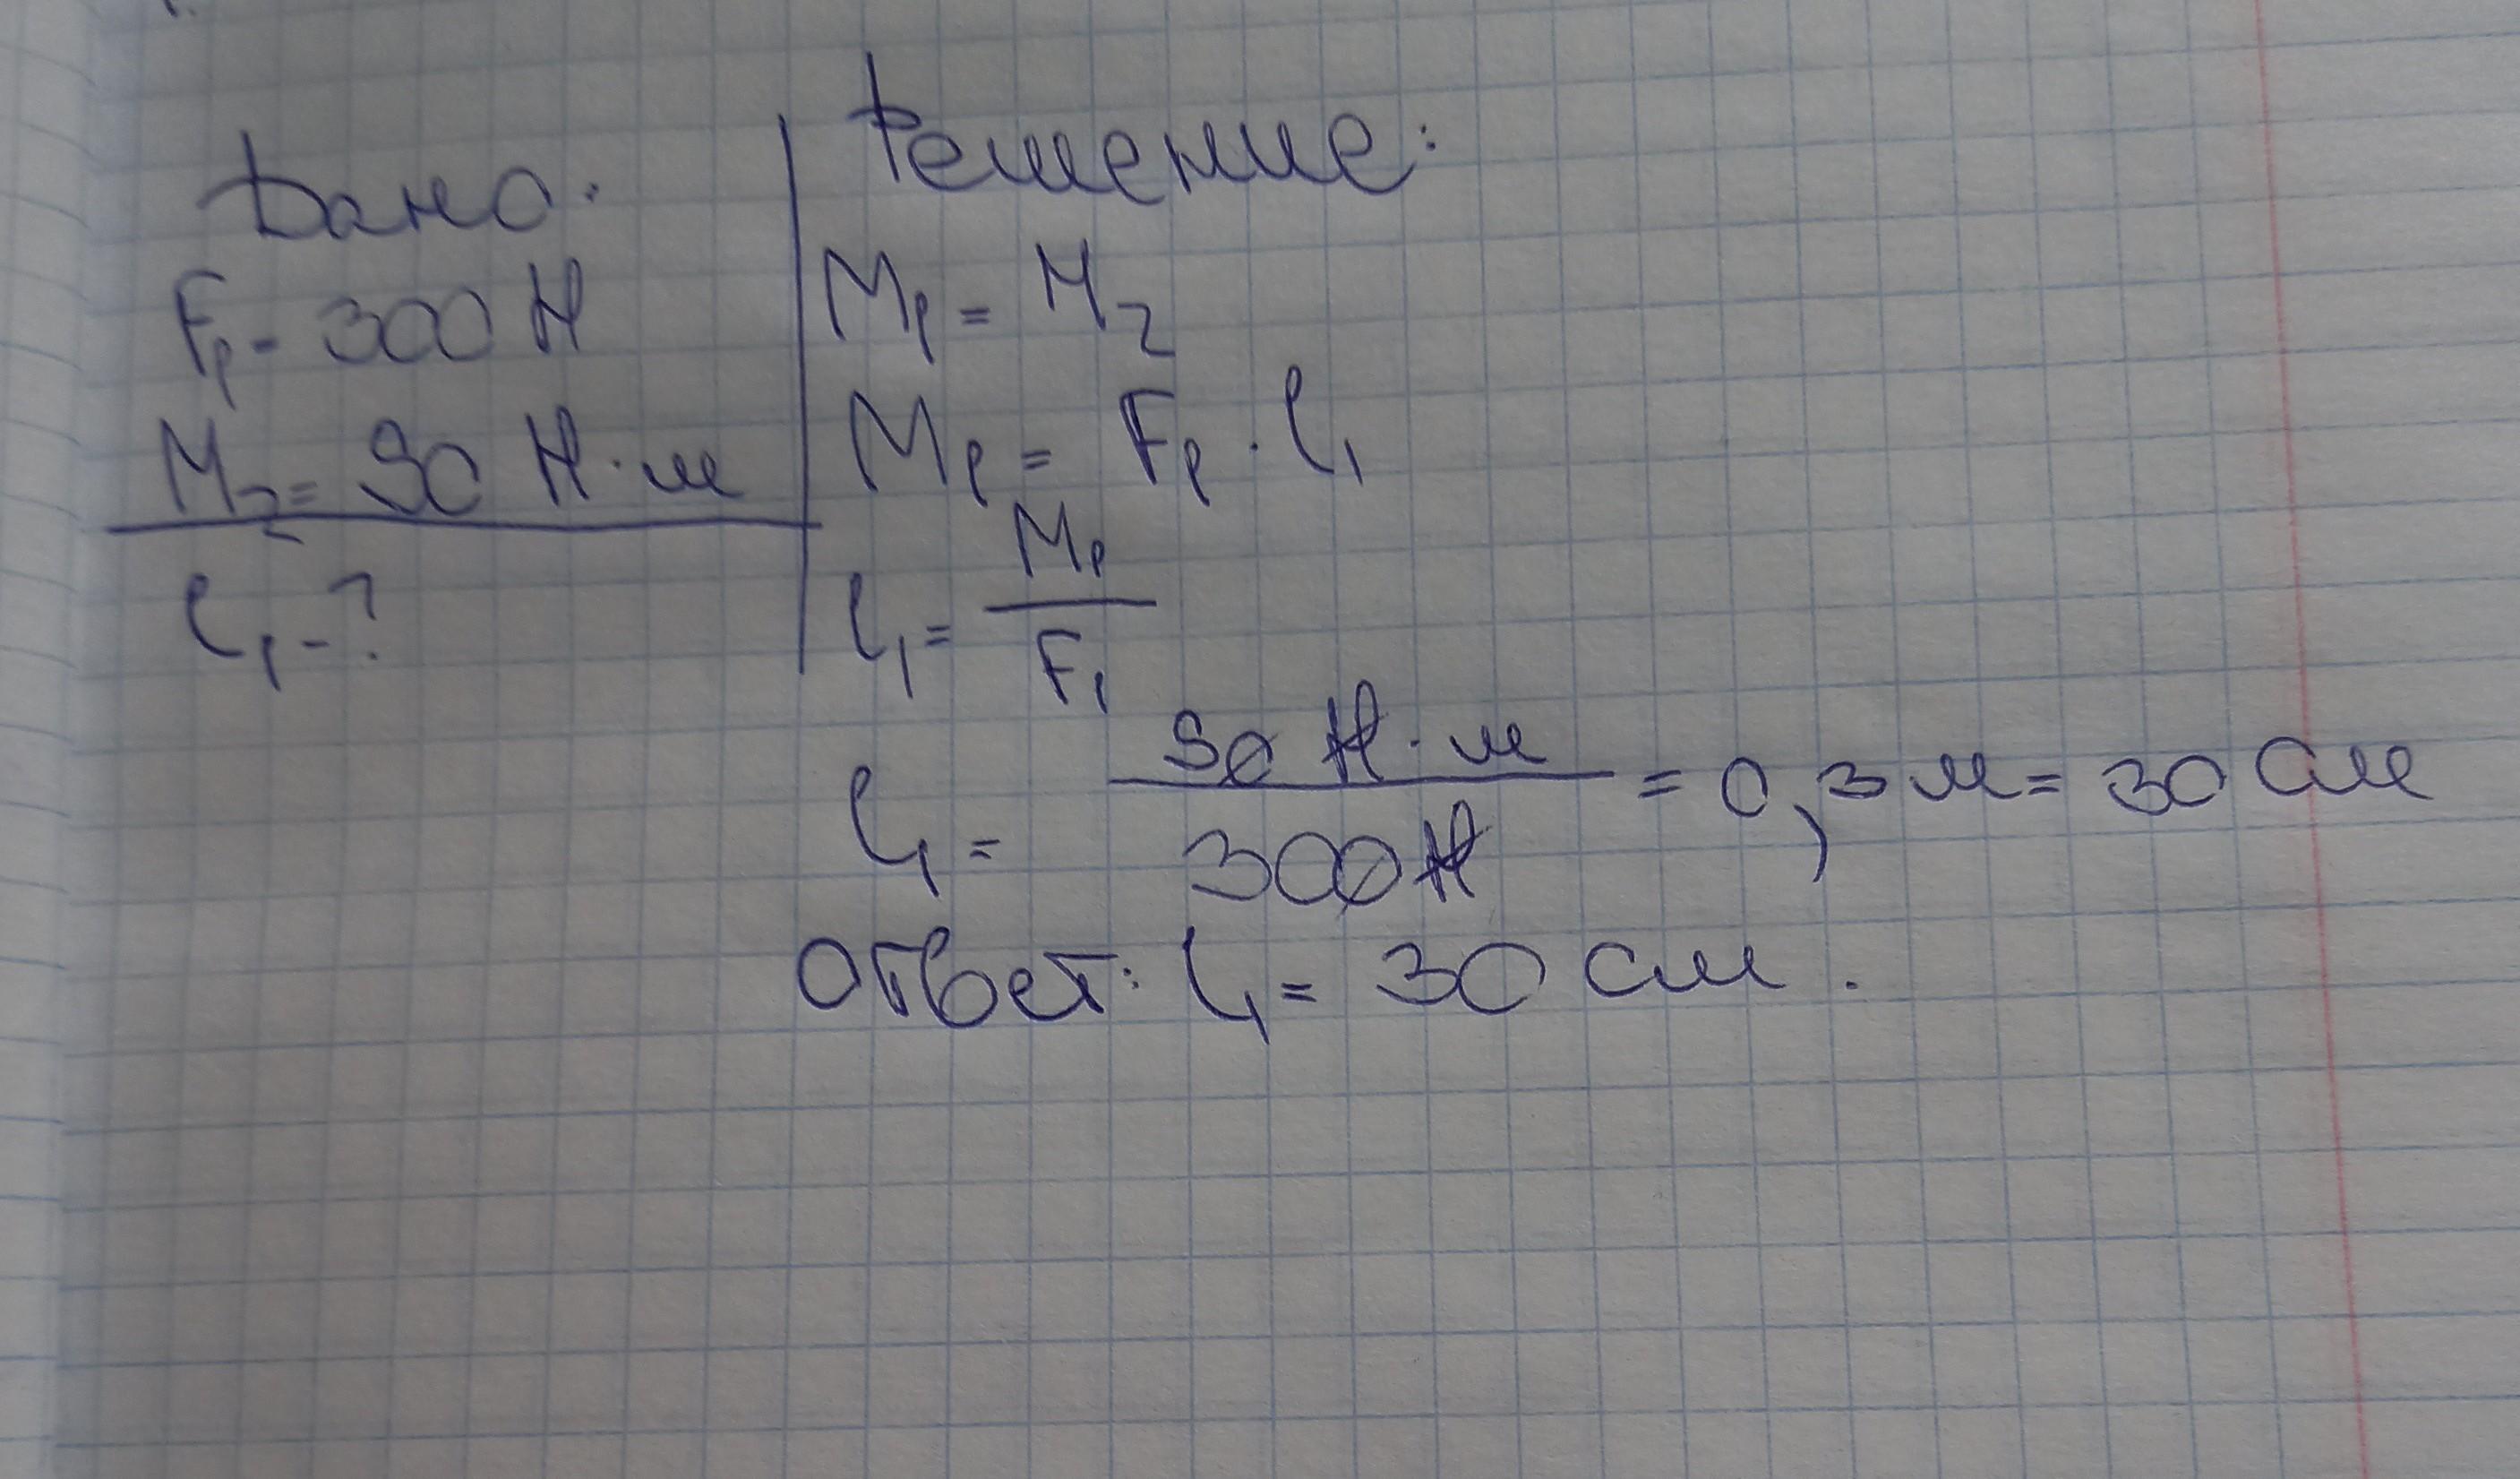 Дано:
F₁ - 300 Н
M₂ = 90 Н·м
l₁ - ?
Решение:
M₁ = M₂
M₁ = F₁ · l₁
l₁ = M₁ / F₁
l₁ = 90 Н·м / 300 Н = 0,3 м = 30 см
Ответ: l₁ = 30 см.